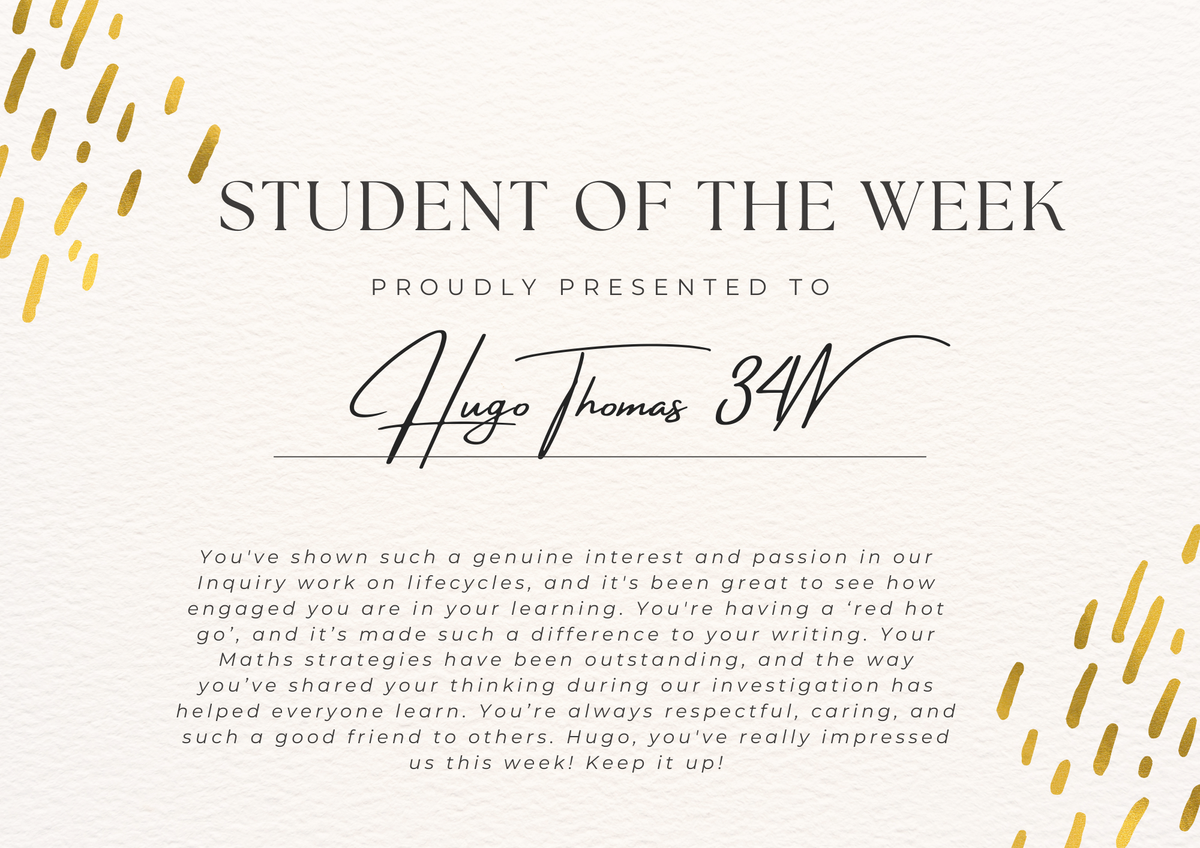 STUDENT OF THE WEEK
PROUDLY PRESENTED TO
Hugo Thomas 34W
You've shown such a genuine interest and passion in our
Inquiry work on lifecycles, and it's been great to see how
engaged you are in your learning. You're having a ‘red hot
go’, and it’s made such a difference to your writing. Your
Maths strategies have been outstanding, and the way
you’ve shared your thinking during our investigation has
helped everyone learn. You’re always respectful, caring, and
such a good friend to others. Hugo, you've really impressed
us this week! Keep it up!